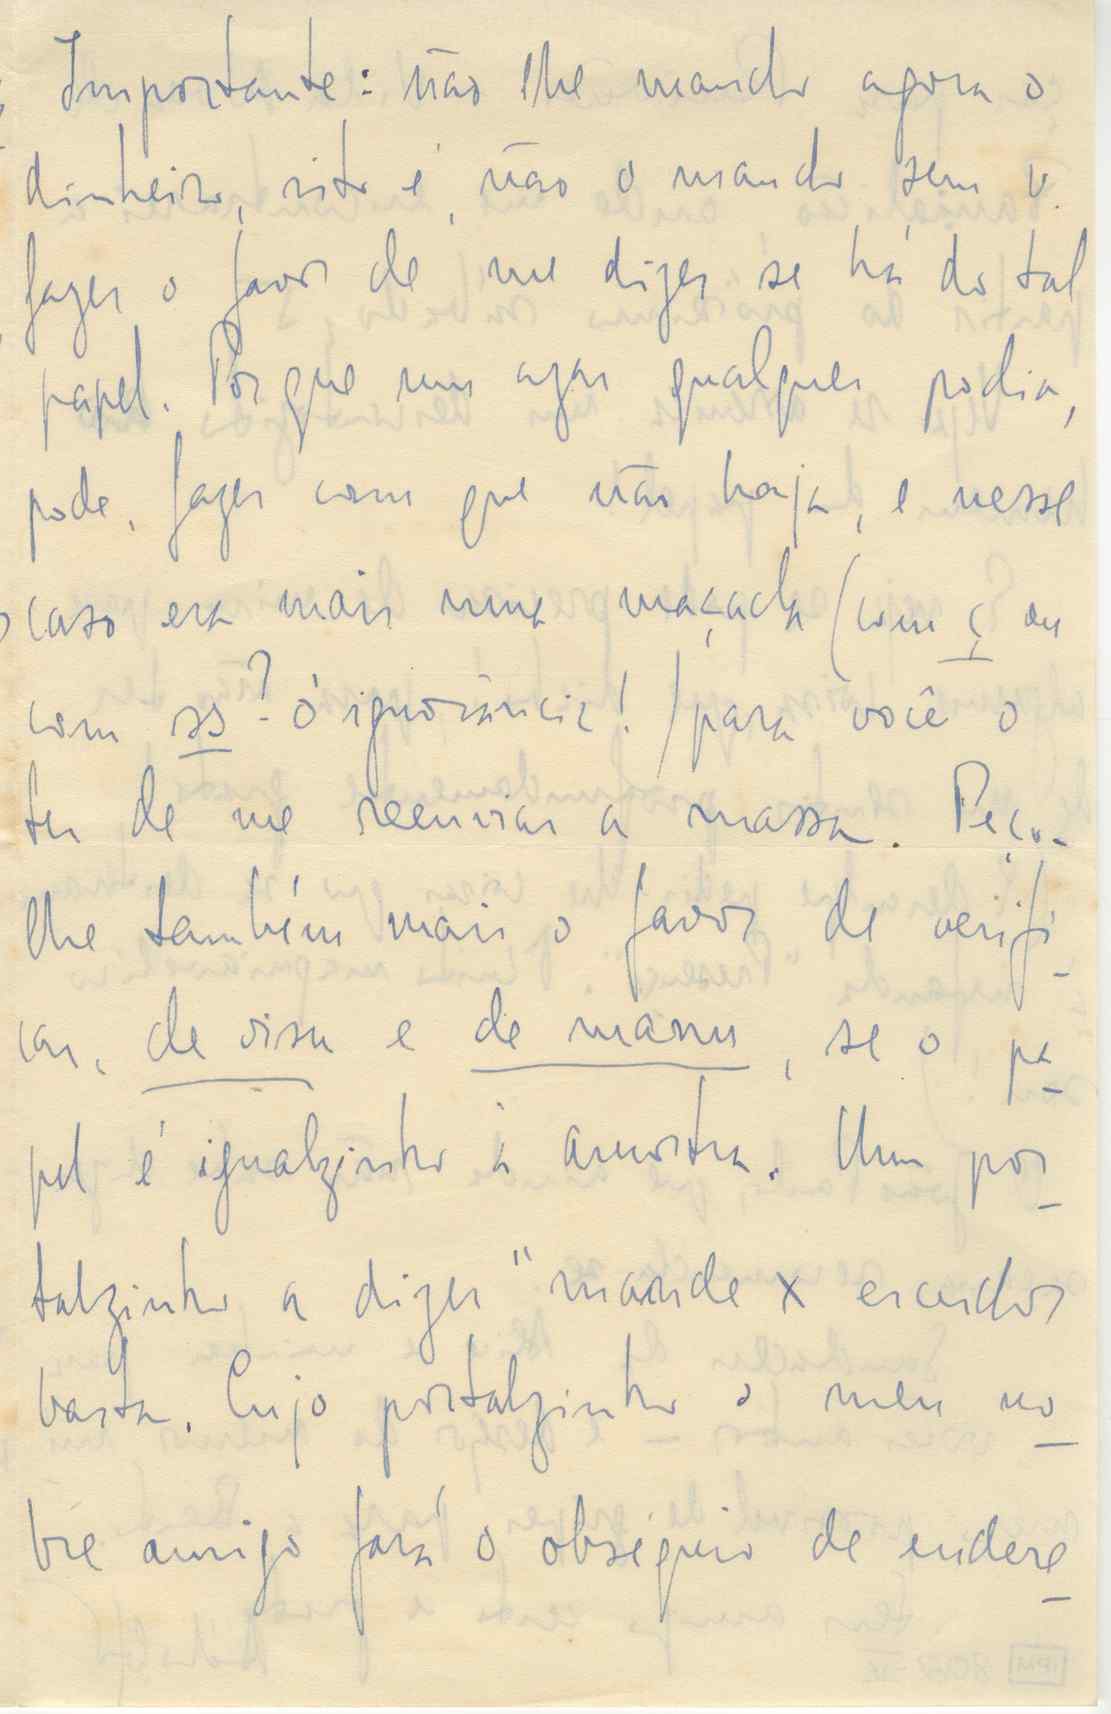 Importante: não lhe mando agora o
dinheiro, isto é, não o mando sem v.
fazer o favor de me dizer se há do tal
papel. Porque um azar qualquer podia,
pode, fazer com que não haja, e nesse
caso era mais uma maçada (com ç ou
com ss? ó ignorância!) para você o
ter de me reenviar a massa. Peço-
lhe também mais o favor de verifi-
car, de visu e de manu, se o pa-
pel é igualzinho à amostra. Um pos-
talzinho a dizer "mande x escudos
basta. Cujo postalzinho o meu no-
bre amigo fará o obséquio de endere-